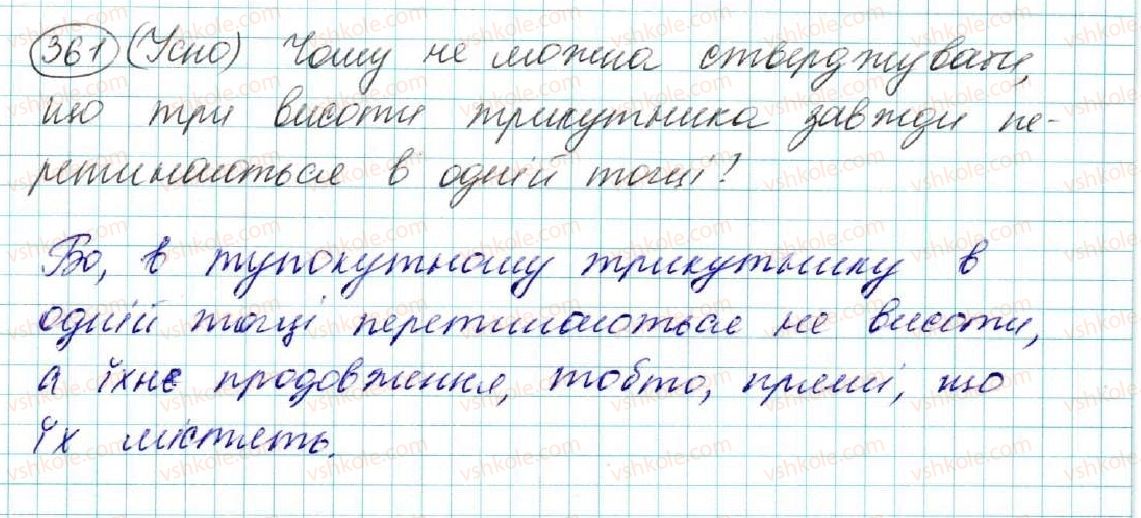 361 (Усно) Чому не можна стверджувати,
що три висоти трикутника завжди пе-
ретинаються в одній точці?
Бо, в тупокутному трикутнику в
одній точці перетинаються не висоти,
а їхнє продовження, тобто, прямі, що
їх містять.